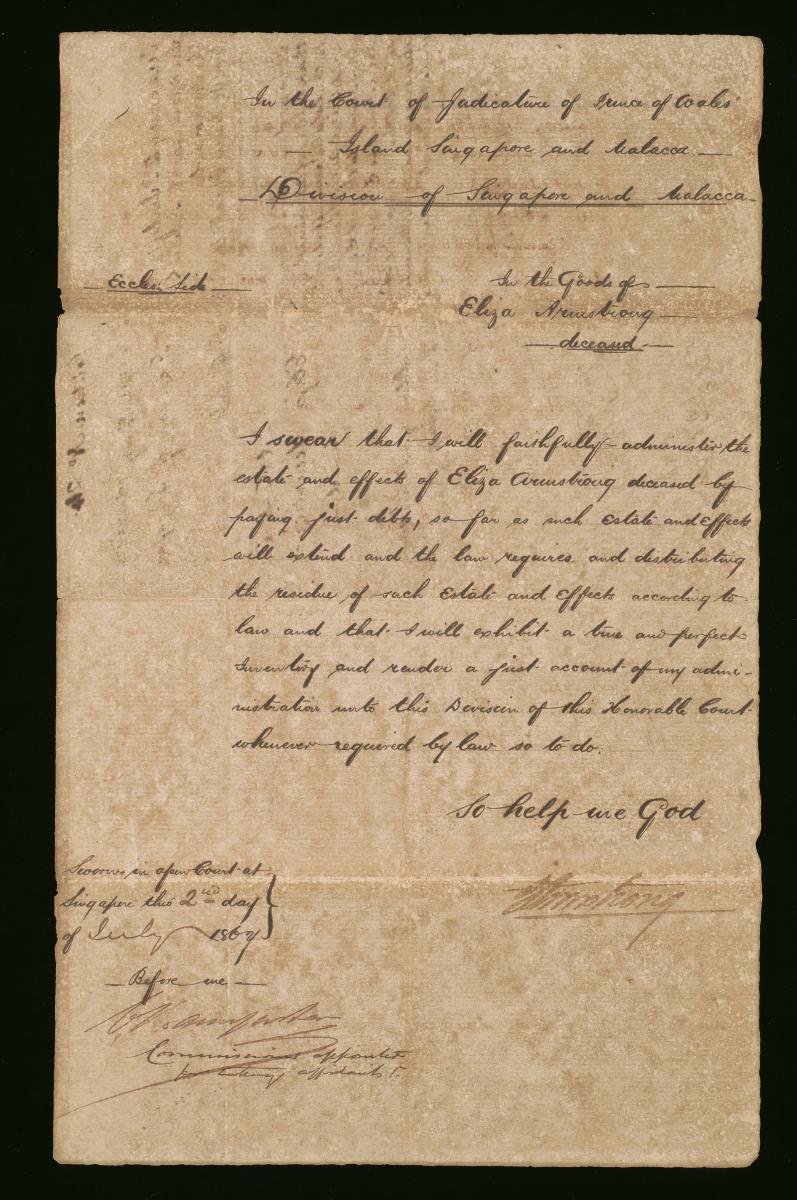 In the Court of Judicature of Prince of Wales'
Island Singapore and Malacca
Division of Singapore and Malacca
Eccles: Side
In the Goods of
Eliza Armstrong
deceased
I swear that I will faithfully administer the
estate and effects of Eliza Armstrong deceased by
paying just debts, so far as such Estate and Effects
will extend and the law requires and distributing
the residue of such Estate and Effects according to
law and that I will exhibit a true and perfect
Inventory and render a just account of my admi-
nistration unto this Division of this Honorable Court
whenever required by law so to do.
So help me God
Sworn in open Court at
Singapore this 2nd day
of July 1867
Armstrong
Before me
Commissioner appointed
affidavits &.